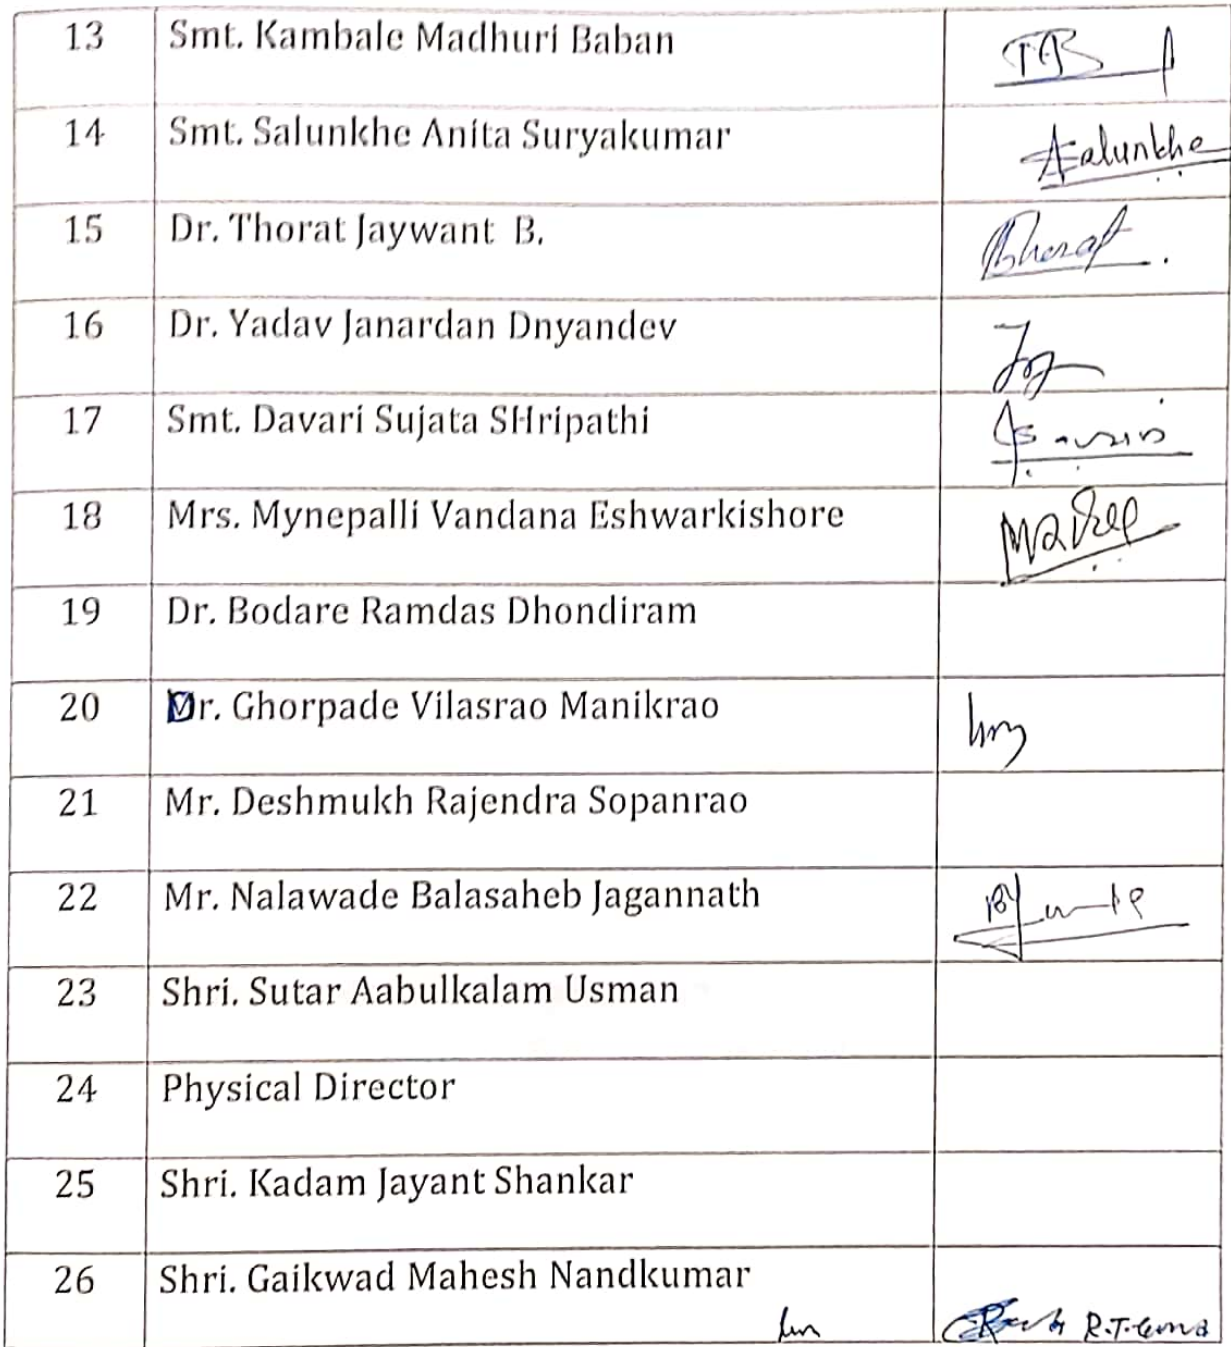 13 Smt. Kambale Madhuri Baban
14 Smt. Salunkhe Anita Suryakumar Aalunkhe
15 Dr. Thorat Jaywant B.
16 Dr. Yadav Janardan Dnyandev
17 Smt. Davari Sujata SHripathi
18 Mrs. Mynepalli Vandana Eshwarkishore
19 Dr. Bodare Ramdas Dhondiram
20 Mr. Ghorpade Vilasrao Manikrao
21 Mr. Deshmukh Rajendra Sopanrao
22 Mr. Nalawade Balasaheb Jagannath
23 Shri. Sutar Aabulkalam Usman
24 Physical Director
25 Shri. Kadam Jayant Shankar
26 Shri. Gaikwad Mahesh Nandkumar